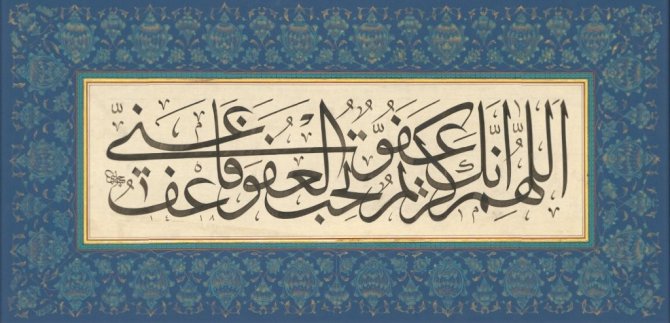 اَللّٰهُمَّ اِنَّكَ عَفُوٌّ كَرِيمٌ تُحِبُّ الْعَفْوَ فَاعْفُ عَنِّي